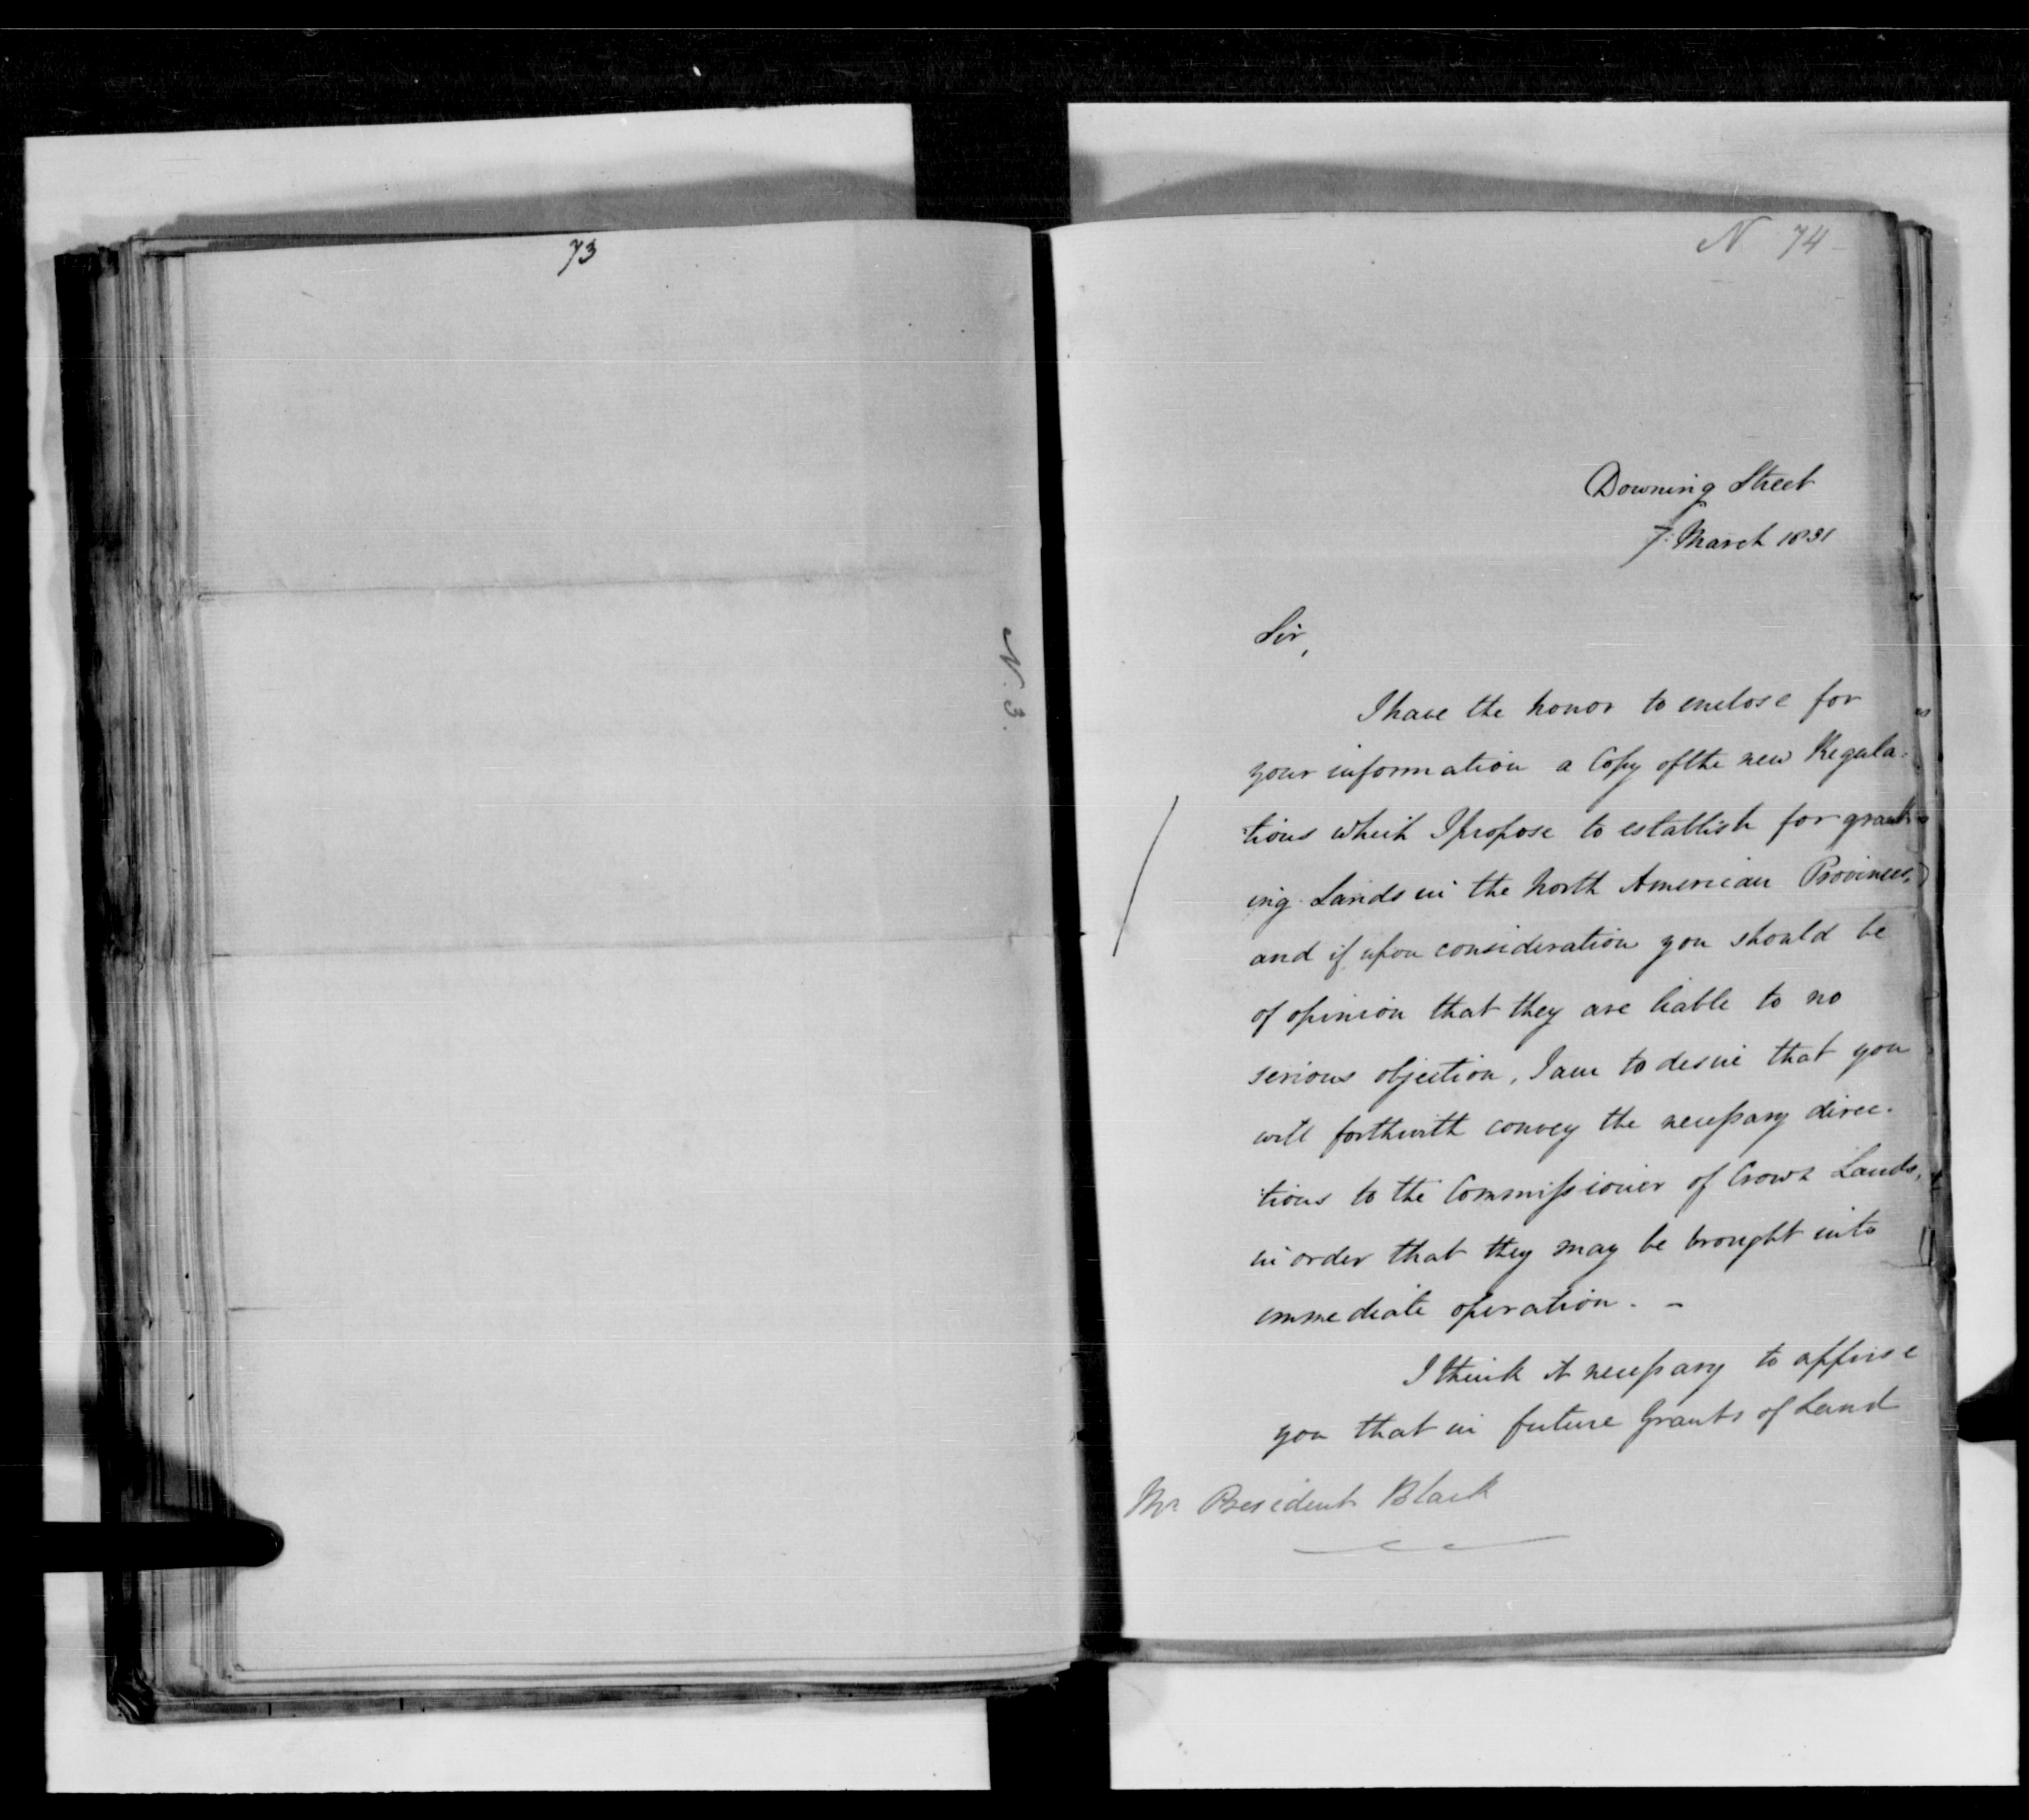 73
N. 3.
N 74
Downing Street
7: March 1831
Sir,
I have the honor to enclose for
your information a Copy of the new Regula:
:tions which I propose to establish for grant:
ing Lands in the North American Provinces,
and if upon consideration you should be
of opinion that they are liable to no
serious objection, I am to desire that you
will forthwith convey the necessary direc.
:tions to the Commissioner of Crown Lands,
in order that they may be brought into
immediate operation. -
I think it necessary to apprise
you that in future Grants of Land
Mr President Black